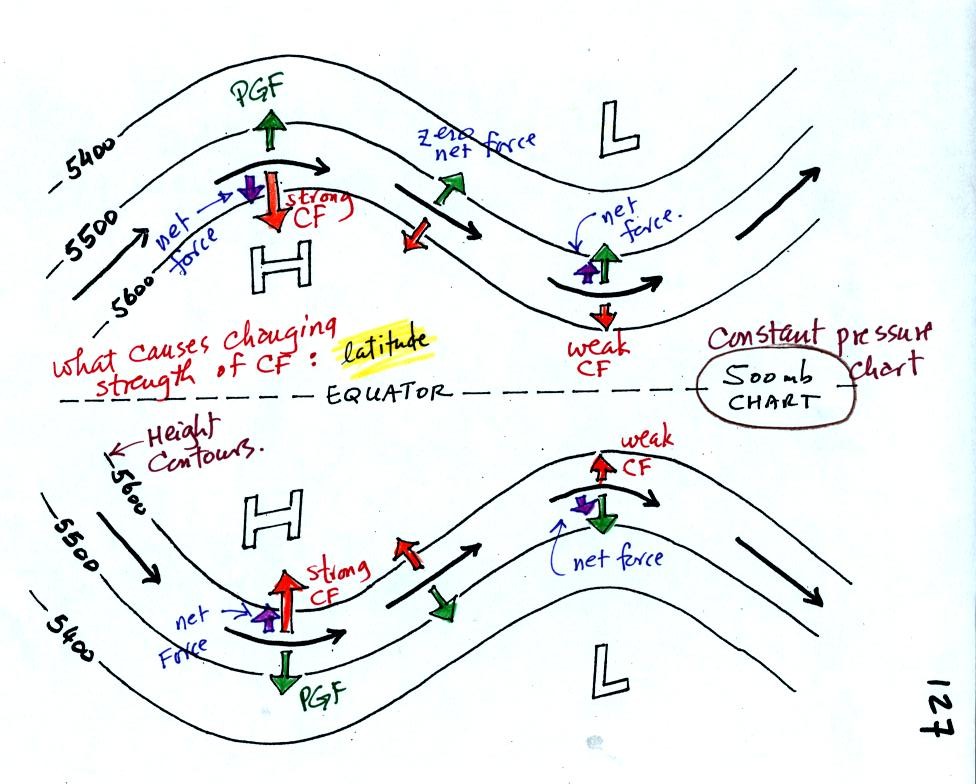 PGF
L
zero
net force
5400
strong
CF
net
force.
5500
net
force
H
5600
what causes changing
strength of CF : latitude
weak
CF
Constant pressure
chart
500mb
CHART
EQUATOR
Height
Contours.
weak
CF
5600
H
5500
strong
CF
net force
net
Force
5400
PGF
L
127